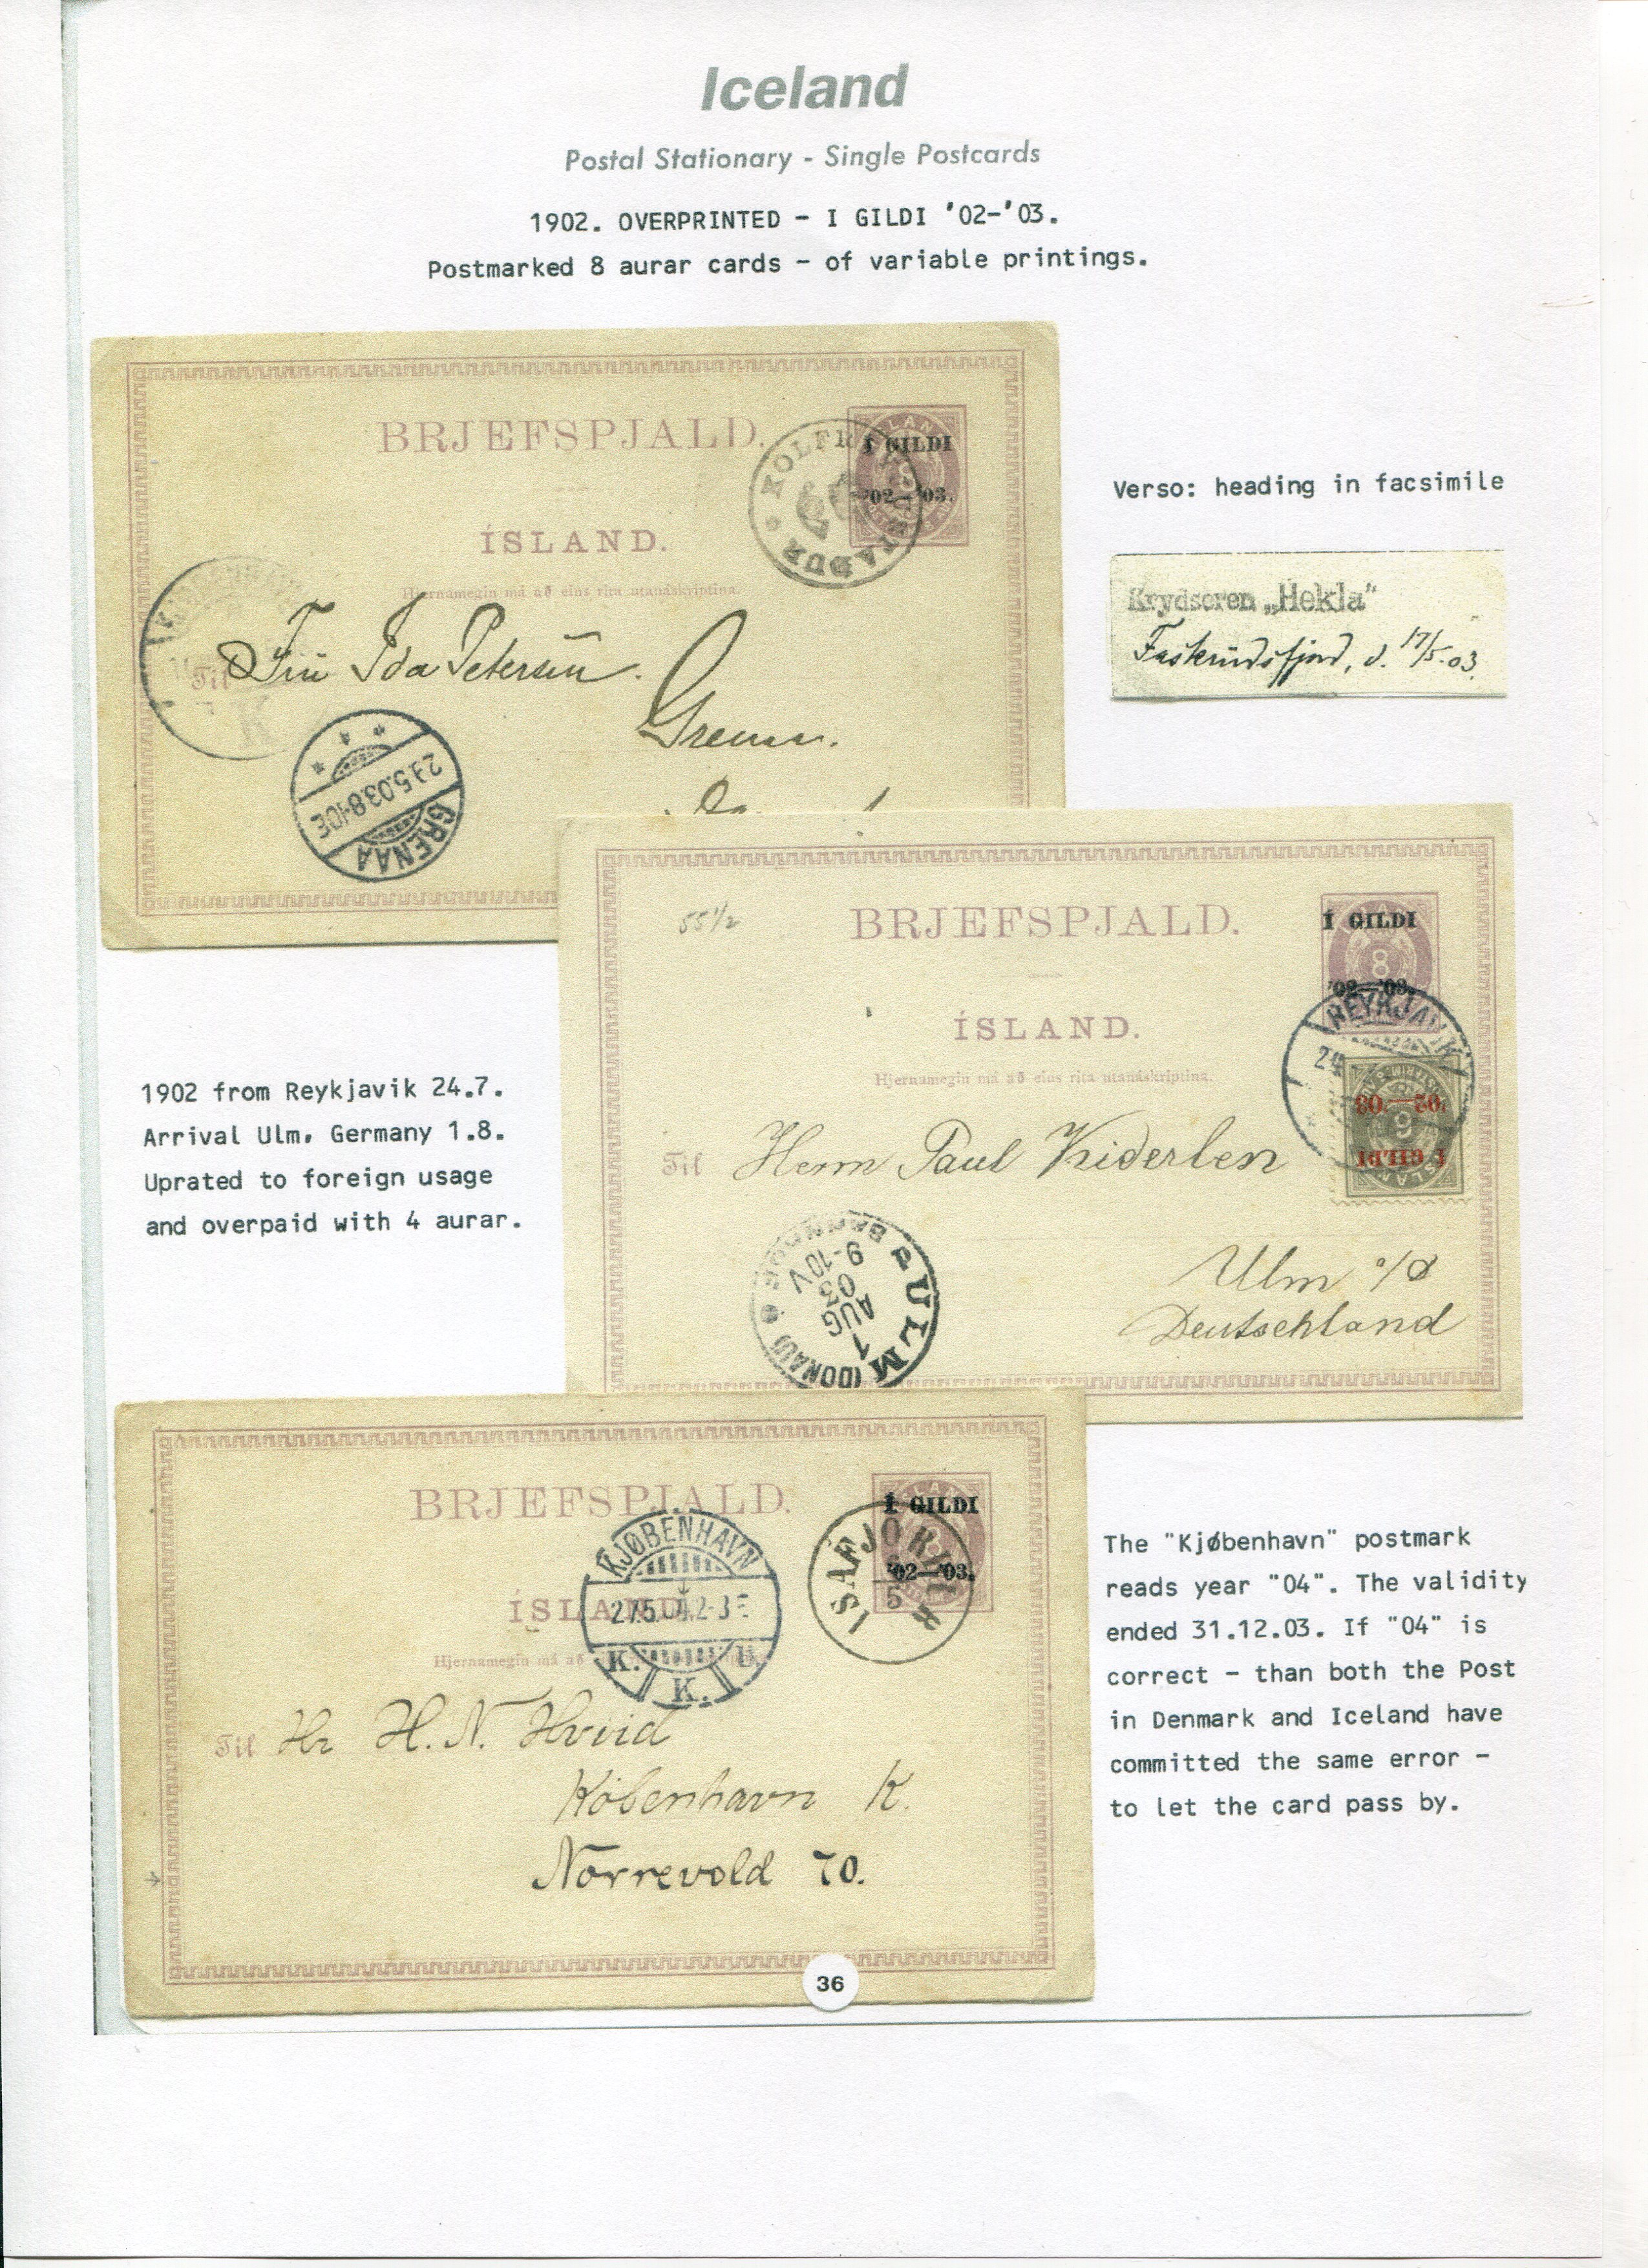 Iceland
Postal Stationary - Single Postcards
1902. OVERPRINTED - I GILDI '02-'03.
Postmarked 8 aurar cards - of variable printings.
BRJEFSPJALD.
Í GILDI
'02-'03.
ÍSLAND.
Hjernamegin má að eins rita utanáskriptina.
Til Frú Ida Petersen.
Grenaa.
GRENAA
29.5.03.8-10E
K
Verso: heading in facsimile
Krydseren „Hekla"
Faskrudsfjord, d. 17/5.03.
55 1/2
BRJEFSPJALD.
Í GILDI
8
'02-'03.
ÍSLAND.
REYKJAVIK
Hjernamegin má að eins rita utanáskriptina.
'02-'03.
6
Í GILDI
Til Herrn Paul Kiderlen
Ulm a/D
Deutschland
ULM (DONAU)
1 AUG 03
9-10V
1902 from Reykjavik 24.7.
Arrival Ulm, Germany 1.8.
Uprated to foreign usage
and overpaid with 4 aurar.
BRJEFSPJALD.
Í GILDI
'02-'03.
ÍSAFJÖRÐUR
5
KJØBENHAVN
27.5.04.2-3E
K.
ÍSLAND.
Hjernamegin má að
Til Hr H. N. Hviid
Köbenhavn K.
Norrevold 70.
The "Kjøbenhavn" postmark
reads year "04". The validity
ended 31.12.03. If "04" is
correct - than both the Post
in Denmark and Iceland have
committed the same error -
to let the card pass by.
36